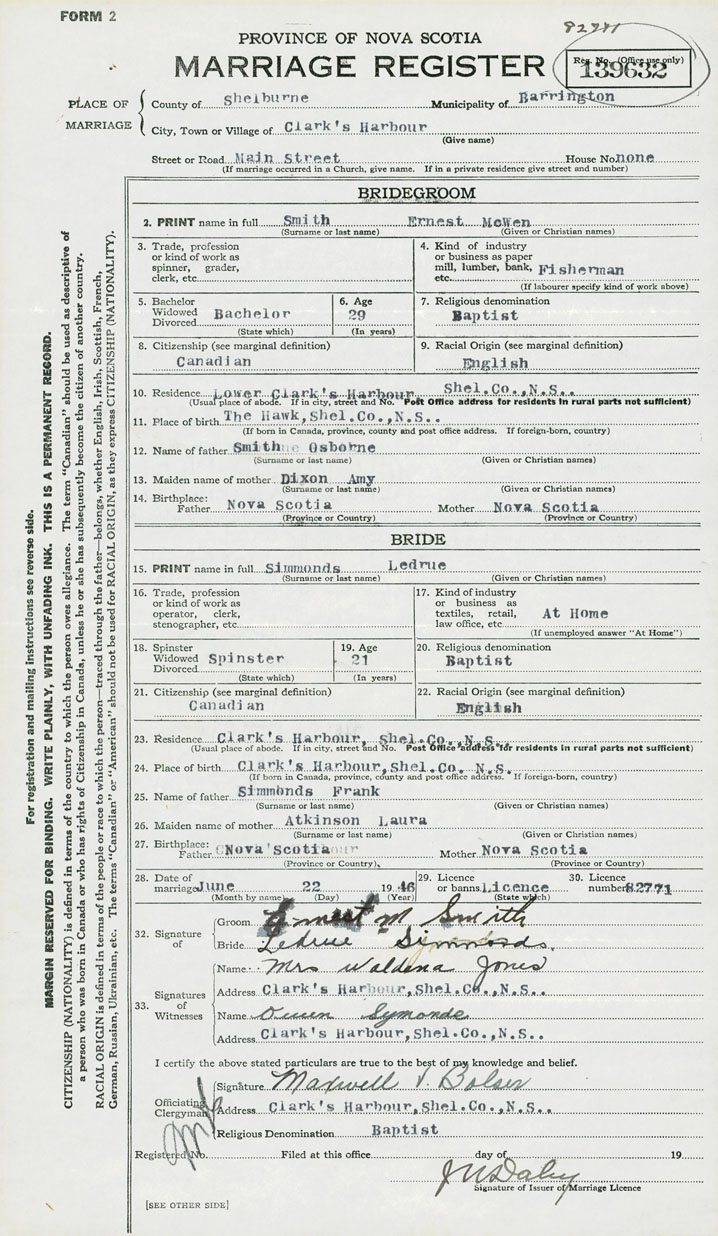 FORM 2
82771
PROVINCE OF NOVA SCOTIA
MARRIAGE REGISTER
Reg. No. (Office use only)
139632
PLACE OF MARRIAGE
County of Shelburne Municipality of Barrington
City, Town or Village of Clark's Harbour
(Give name)
Street or Road Main Street House No. none
(If marriage occurred in a Church, give name. If in a private residence give street and number)
BRIDEGROOM
2. PRINT name in full Smith Ernest McWen
(Surname or last name) (Given or Christian names)
3. Trade, profession
or kind of work as
spinner, grader,
clerk, etc.
4. Kind of industry
or business as paper
mill, lumber, bank,
etc. Fisherman
(If labourer specify kind of work above)
5. Bachelor
Widowed
Divorced Bachelor
(State which)
6. Age
29
(In years)
7. Religious denomination
Baptist
8. Citizenship (see marginal definition)
Canadian
9. Racial Origin (see marginal definition)
English
10. Residence Lower Clark's Harbour Shel.Co.,N.S..
(Usual place of abode. If in city, street and No. Post Office address for residents in rural parts not sufficient)
11. Place of birth The Hawk,Shel.Co.,N.S..
(If born in Canada, province, county and post office address. If foreign-born, country)
12. Name of father Smith Osborne
(Surname or last name) (Given or Christian names)
13. Maiden name of mother Dixon Amy
(Surname or last name) (Given or Christian names)
14. Birthplace:
Father Nova Scotia Mother Nova Scotia
(Province or Country) (Province or Country)
BRIDE
15. PRINT name in full Simmonds Ledrue
(Surname or last name) (Given or Christian names)
16. Trade, profession
or kind of work as
operator, clerk,
stenographer, etc.
17. Kind of industry
or business as
textiles, retail,
law office, etc. At Home
(If unemployed answer "At Home")
18. Spinster
Widowed
Divorced Spinster
(State which)
19. Age
21
(In years)
20. Religious denomination
Baptist
21. Citizenship (see marginal definition)
Canadian
22. Racial Origin (see marginal definition)
English
23. Residence Clark's Harbour, Shel.Co.,N.S.
(Usual place of abode. If in city, street and No. Post Office address for residents in rural parts not sufficient)
24. Place of birth Clark's Harbour,Shel.Co. N.S.
(If born in Canada, province, county and post office address. If foreign-born, country)
25. Name of father Simmonds Frank
(Surname or last name) (Given or Christian names)
26. Maiden name of mother Atkinson Laura
(Surname or last name) (Given or Christian names)
27. Birthplace:
Father Nova Scotia Mother Nova Scotia
(Province or Country) (Province or Country)
28. Date of
marriage June 22 1946
(Month by name) (Day) (Year)
29. Licence
or banns Licence
(State which)
30. Licence
number 82771
32. Signature of
Groom Ernest M Smith
Bride Ledrue Simmonds.
33. Signatures of Witnesses
Name Mrs Waldena Jones
Address Clark's Harbour,Shel.Co.,N.S..
Name Owen Symonds
Address Clark's Harbour,Shel.Co.,N.S..
I certify the above stated particulars are true to the best of my knowledge and belief.
Officiating Clergyman
Signature Maxwell V. Bolser
Address Clark's Harbour,Shel.Co.,N.S..
Religious Denomination Baptist
Registered No. Filed at this office day of 19
Signature of Issuer of Marriage Licence
[SEE OTHER SIDE]
For registration and mailing instructions see reverse side.
MARGIN RESERVED FOR BINDING. WRITE PLAINLY, WITH UNFADING INK. THIS IS A PERMANENT RECORD.
CITIZENSHIP (NATIONALITY) is defined in terms of the country to which the person owes allegiance. The term "Canadian" should be used as descriptive of
a person who was born in Canada or who has rights of Citizenship in Canada, unless he or she has subsequently become the citizen of another country.
RACIAL ORIGIN is defined in terms of the people or race to which the person—traced through the father—belongs, whether English, Irish, Scottish, French,
German, Russian, Ukrainian, etc. The terms "Canadian" or "American" should not be used for RACIAL ORIGIN, as they express CITIZENSHIP (NATIONALITY).